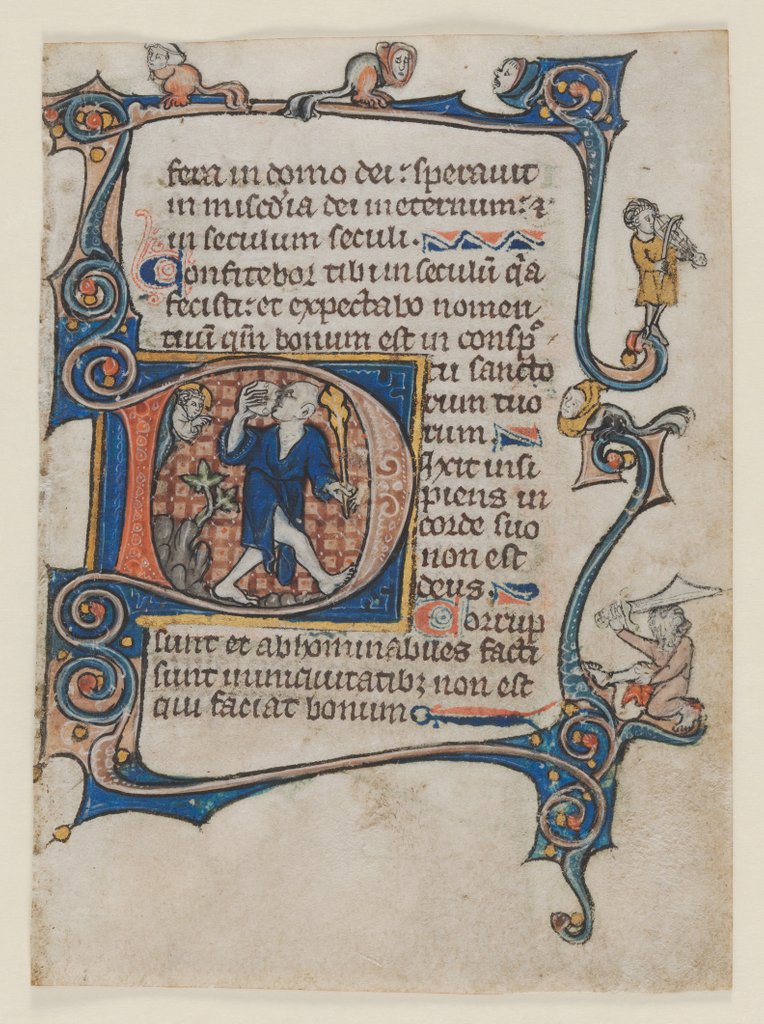 fera in domo dei : speravit
in misc̄dia dei in eternum : ⁊
in seculum seculi .
Confitebor tibi in seculū q̄a
fecisti : et expectabo nomen
tuū qm̄ bonum est in consp̄
tu sancto
rum tuo
rum .
Dixit insi
piens in
corde suo
non est
deus .
Corrup
sunt et abhominabiles facti
sunt in iniquitatibꝫ non est
qui faciat bonum